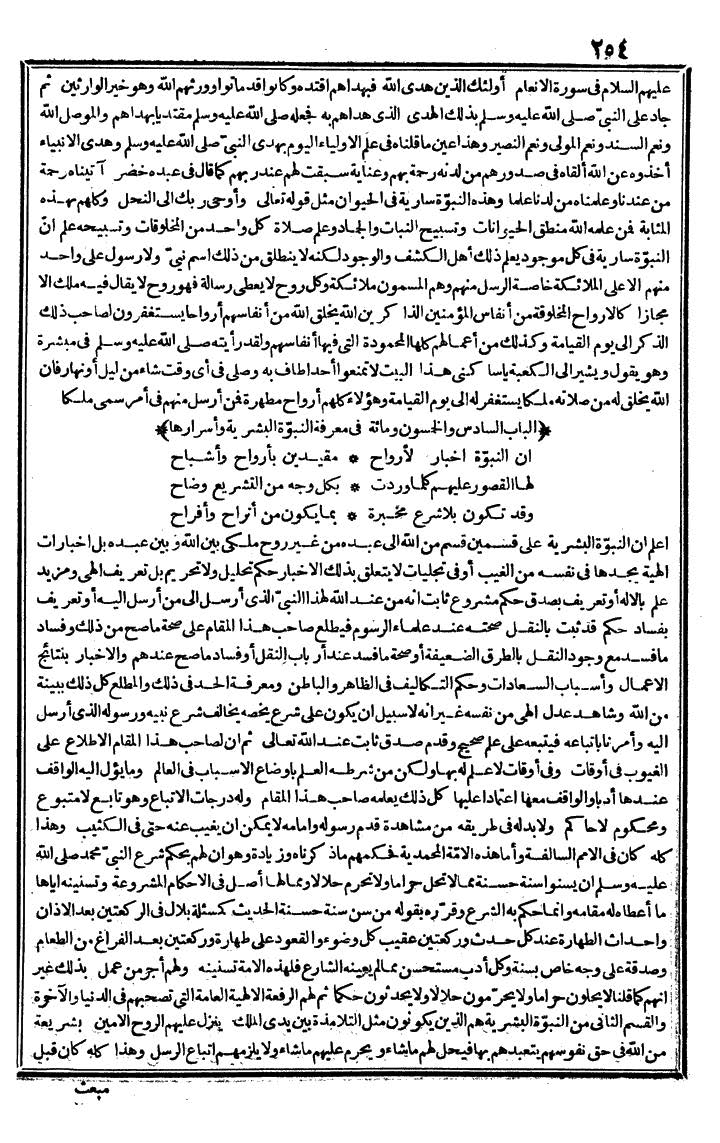 ٢٥٤
عليهم السلام فى سورة الانعام أولئك الذين هدى الله فبهداهم اقتده وكانوا قد ماتوا وورثهم الله وهو خير الوارثين ثم
جاد على النبىّ صلى الله عليه وسلم بذلك الهدى الذى هداهم به فجعله صلى الله عليه وسلم مقتديا بهداهم والموصل الله
ونعم السند ونعم المولى ونعم النصير وهذا عين ما قلناه فى علم الاولياء اليوم بهدى النبىّ صلى الله عليه وسلم وهدى الانبياء
أخذوه عن الله ألقاه فى صدورهم من لدنه رحمة بهم وعناية سبقت لهم عند ربهم كما قال فى عبده خضر آتيناه رحمة
من عندنا وعلمناه من لدنا علما وهذه النبوّة سارية فى الحيوان مثل قوله تعالى وأوحى ربك الى النحل وكلهم بهذه
المثابة فمن علمه الله منطق الحيوانات وتسبيح النبات والجماد وعلم صلاة كل واحد من المخلوقات وتسبيحه علم انّ
النبوّة سارية فى كل موجود يعلم ذلك أهل الكشف والوجود لكنه لا ينطلق من ذلك اسم نبىّ ولا رسول على واحد
منهم الا على الملائكة خاصة الرسل منهم وهم المسمون ملائكة وكل روح لا يعطى رسالة فهو روح لا يقال فيه ملك الا
مجازا كالارواح المخلوقة من أنفاس المؤمنين الذاكرين الله يخلق الله من أنفاسهم أرواحا يستغفرون لصاحب ذلك
الذكر الى يوم القيامة وكذلك من أعمالهم كلها المحمودة التى فيها أنفاسهم ولقد رأيته صلى الله عليه وسلم فى مبشرة
وهو يقول ويشير الى الكعبة يا ساكنى هذا البيت لا تمنعوا أحدا طاف به وصلى فى أى وقت شاء من ليل أو نهار فان
الله يخلق له من صلاته ملكا يستغفر له الى يوم القيامة وهؤلاء كلهم أرواح مطهرة فمن أرسل منهم فى أمر سمى ملكا
﴿الباب السادس والخمسون ومائة فى معرفة النبوّة البشرية وأسرارها﴾
ان النبوّة اخبار لأرواح * مقيدين بأرواح وأشباح
لها القصور عليهم كلما وردت * بكل وجه من التشريع وضاح
وقد تكون بلا شرع مخبرة * بما يكون من أتراح وأفراح
اعلم ان النبوّة البشرية على قسمين قسم من الله الى عبده من غير روح ملكى بين الله وبين عبده بل اخبارات
الهية يجدها فى نفسه من الغيب أو فى تجليات لا يتعلق بذلك الاخبار حكم تحليل ولا تحريم بل تعريف الهى ومزيد
علم بالاله أو تعريف بصدق حكم مشروع ثابت انه من عند الله لهذا النبىّ الذى أرسل الى من أرسل اليه أو تعريف
بفساد حكم قد ثبت بالنقل صحته عند علماء الرسوم فيطلع صاحب هذا المقام على صحة ما صح من ذلك وفساد
ما فسد مع وجود النقل بالطرق الضعيفة أو صحة ما فسد عند أرباب النقل أو فساد ما صح عندهم والاخبار بنتائج
الاعمال وأسباب السعادات وحكم التكاليف فى الظاهر والباطن ومعرفة الحد فى ذلك والمطلع كل ذلك ببينة
من الله وشاهد عدل الهى من نفسه غير انه لا سبيل ان يكون على شرع يخصه يخالف شرع نبيه ورسوله الذى أرسل
اليه وأمرنا باتباعه فيتبعه على علم صحيح وقدم صدق ثابت عند الله تعالى ثم ان لصاحب هذا المقام الاطلاع على
الغيوب فى أوقات وفى أوقات لا علم له بها ولكن من شرطه العلم باوضاع الاسباب فى العالم وما يؤل اليه الواقف
عندها أدبا والواقف معها اعتمادا عليها كل ذلك يعلمه صاحب هذا المقام وله درجات الاتباع وهو تابع لا متبوع
ومحكوم لا حاكم ولا بد له فى طريقه من مشاهدة قدم رسوله وامامه لا يمكن ان يغيب عنه حتى فى الكثيب وهذا
كله كان فى الامم السالفة وأما هذه الامّة المحمدية فحكمهم ما ذكرناه وزيادة وهو ان لهم بحكم شرع النبىّ محمد صلى الله
عليه وسلم ان يسنوا سنة حسنة مما لا تحل حراما ولا تحرم حلالا ومما لها أصل فى الاحكام المشروعة وتسنينه اياها
ما أعطاه له مقامه وانما حكم به الشرع وقرّره بقوله من سن سنة حسنة الحديث كمسئلة بلال فى الركعتين بعد الاذان
واحداث الطهارة عند كل حدث وركعتين عقيب كل وضوء والقعود على طهارة وركعتين بعد الفراغ من الطعام
وصدقة على وجه خاص بسنة وكل أدب مستحسن مما لم يعينه الشارع فلهذه الامة تسنينه ولهم أجر من عمل بذلك غير
انهم كما قلنا لا يحلون حراما ولا يحرّمون حلالا ولا يحدثون حكما ثم لهم الرفعة الالهية العامة التى تصحبهم فى الدنيا والآخرة
والقسم الثانى من النبوّة البشرية هم الذين يكونون مثل التلامذة بين يدى الملك ينزل عليهم الروح الامين بشريعة
من الله فى حق نفوسهم يتعبدهم بها فيحل لهم ما يشاء ويحرم عليهم ما يشاء ولا يلزمهم اتباع الرسل وهذا كله كان قبل
مبعث